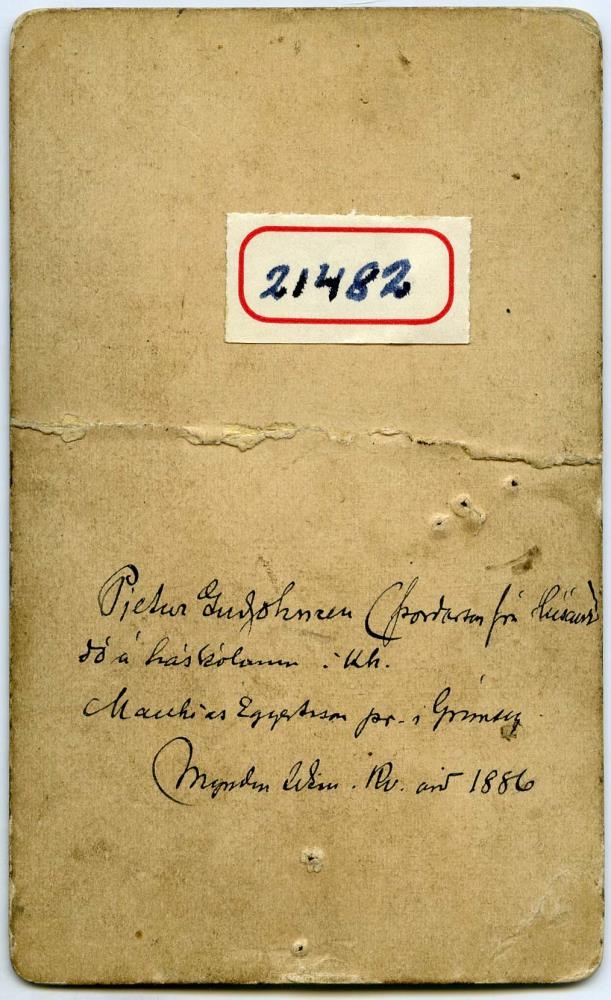 21482
Pjetur Gudjohnsen (Þórðarson frá Húsavík
dó á háskólanum í Kh.
Matthias Eggertsson pr. í Grímsey
Myndin tekin í Rv. árið 1886